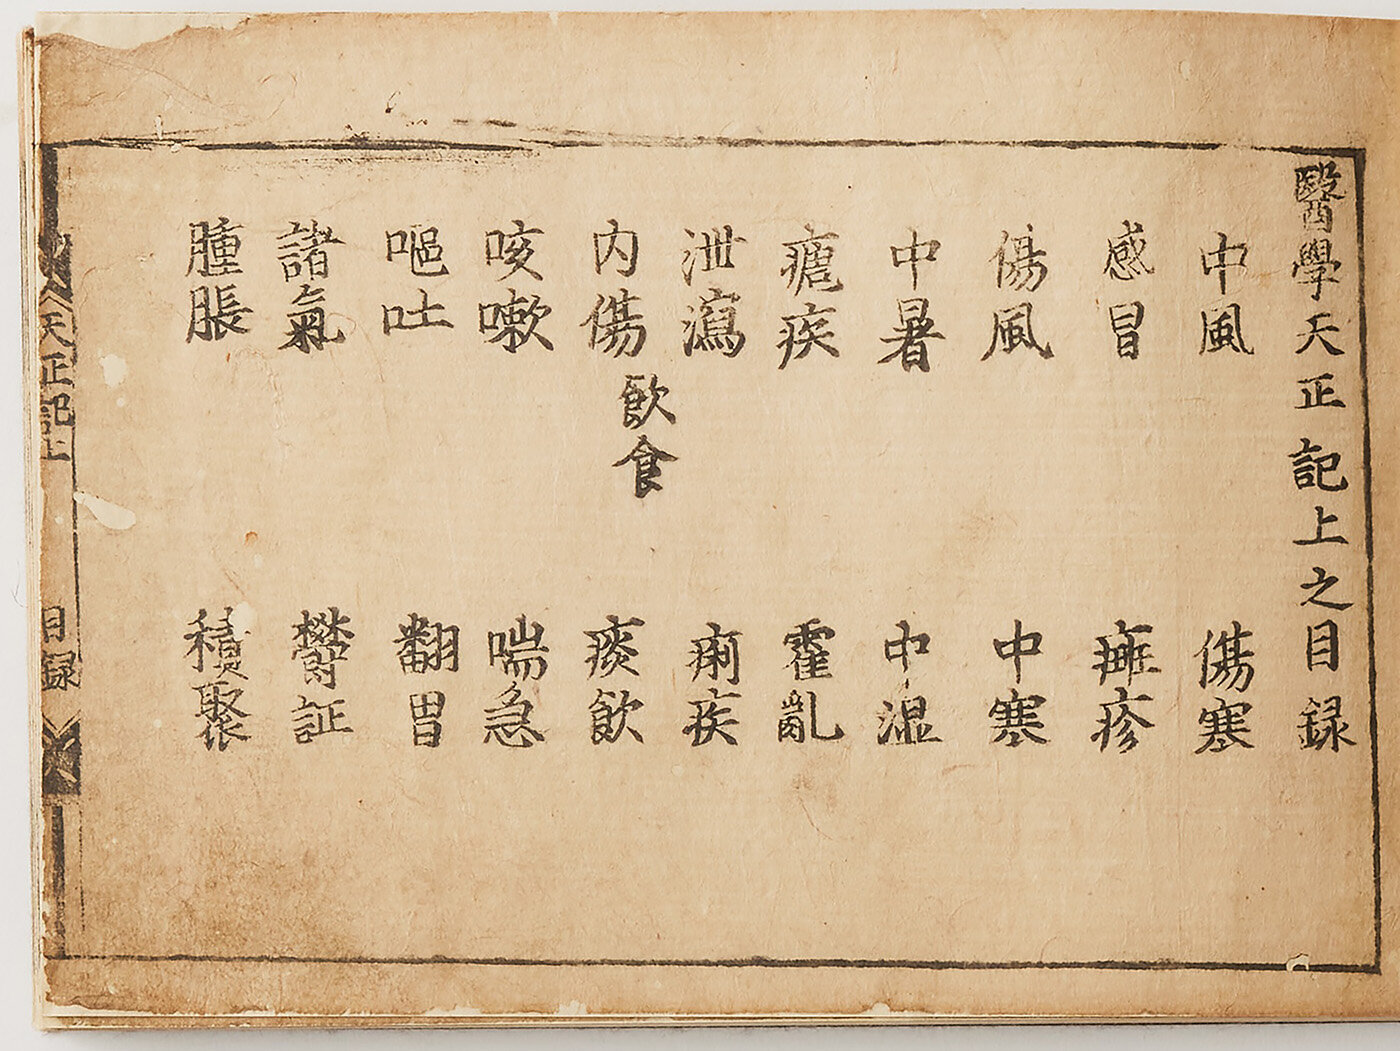 醫學天正記上之目録
中風 傷寒
感冒 㿈疹
傷風 中寒
中暑 中湿
瘧疾 霍亂
泄瀉 痢疾
内傷 飲食 痰飲
咳嗽 喘急
嘔吐 翻胃
諸氣 欝証
腫脹 積聚
天正記上 目録